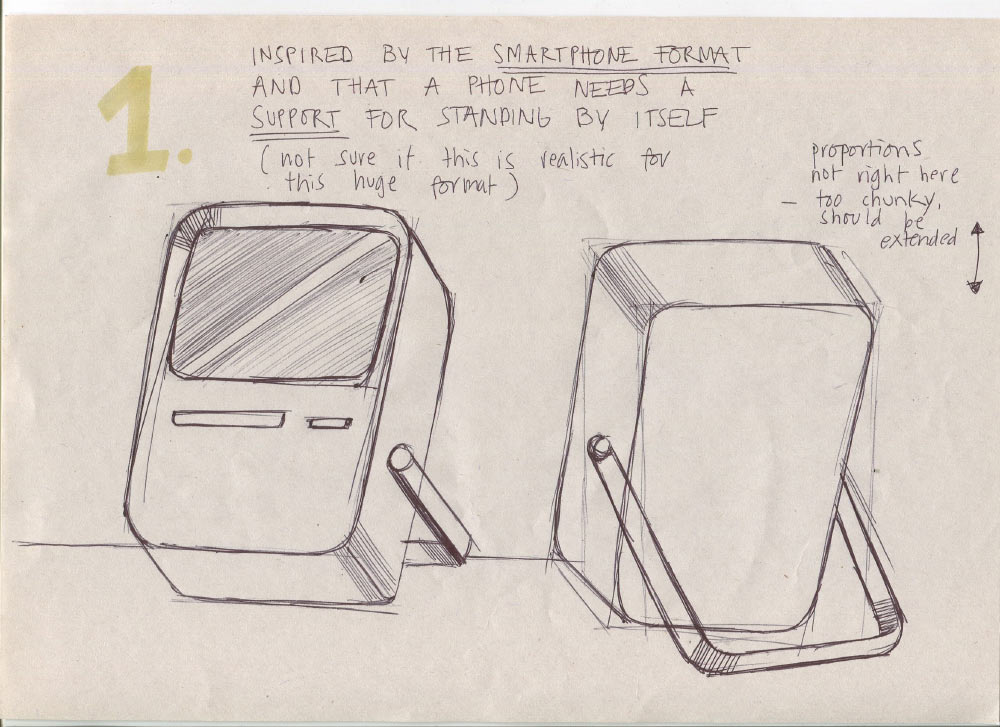 1.
INSPIRED BY THE SMARTPHONE FORMAT
AND THAT A PHONE NEEDS A
SUPPORT FOR STANDING BY ITSELF
(not sure if this is realistic for
this huge format)
proportions
not right here
– too chunky,
should be
extended